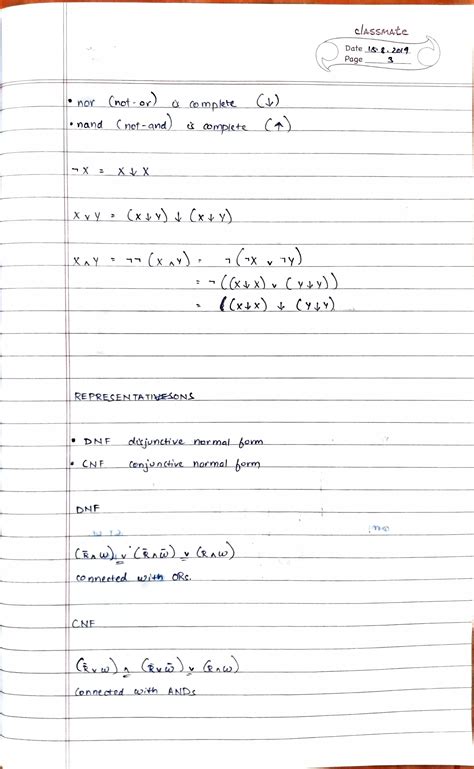 classmate
Date 18.8.2019
Page 3
• nor (not-or) is complete (↓)
• nand (not-and) is complete (↑)
¬X = X↓X
X∨Y = (X↓Y) ↓ (X↓Y)
X∧Y = ¬¬(X∧Y) = ¬(¬X ∨ ¬Y)
= ¬((X↓X) ∨ (Y↓Y))
= ((X↓X) ↓ (Y↓Y))
REPRESENTATIVESONS
• DNF disjunctive normal form
• CNF conjunctive normal form
DNF
(R̄∧ω) ∨ (R̄∧ω̄) ∨ (R∧ω)
connected with ORs.
CNF
(R̄∨ω) ∧ (R̄∨ω̄) ∨ (R∧ω)
connected with ANDs